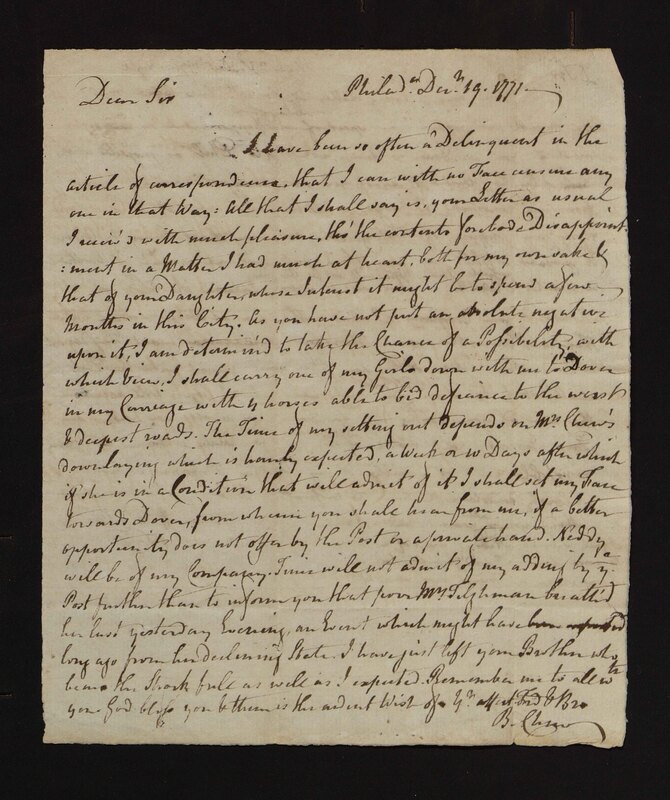 Philad.a Decr. 19. 1771
Dear Sir
I have been so often a Delinquent in the
article of correspondence, that I can with no Face censure any
one in that Way: All that I shall say is, your Letter as usual
I receiv'd with much pleasure, tho' the contents forebode Disappoint
:ment in a Matter I had much at heart, both for my own sake &
that of your Daughter, whose Interest it might be to spend a few
Months in this City. As you have not put an absolute negative
upon it, I am determin'd to take the Chance of a Possibility, with
which View, I shall carry one of my Girls down with me to Dover
in my Carriage with 4 horses able to bid defiance to the worst
& deepest roads. The Time of my setting out depends on Mrs Chew's
down laying which is hourly expected, a week or 10 Days after which
if she is in a Condition that will admit of it I shall set my Face
towards Dover, from whence you shall hear from me, if a better
opportunity does not offer by the Post or a private hand. Neddy
will be of my Company. Time will not admit of my adding by ye.
Post further than to inform you that poor Mrs Tilghman breath'd
her last yesterday Evening, an Event which might have been
long ago from her declining State. I have just left your Brother who
bears the Shock full as well as I expected. Remember me to all wth
you God bless you & them is the ardent Wish of Yr. affect. Frd & Bro
B. Chew